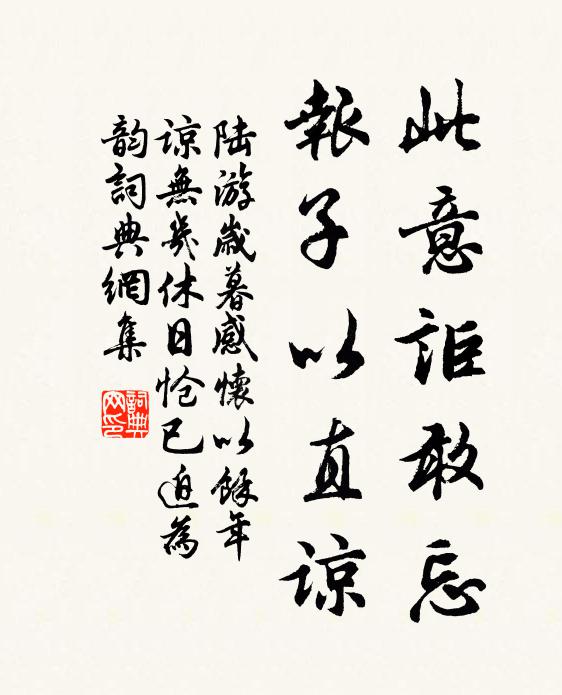 此意詎敢忘
報子以直諒
陸游歲暮感懷以餘年
諒無幾休日愴已迫為
韵詞典網集
詞典网印